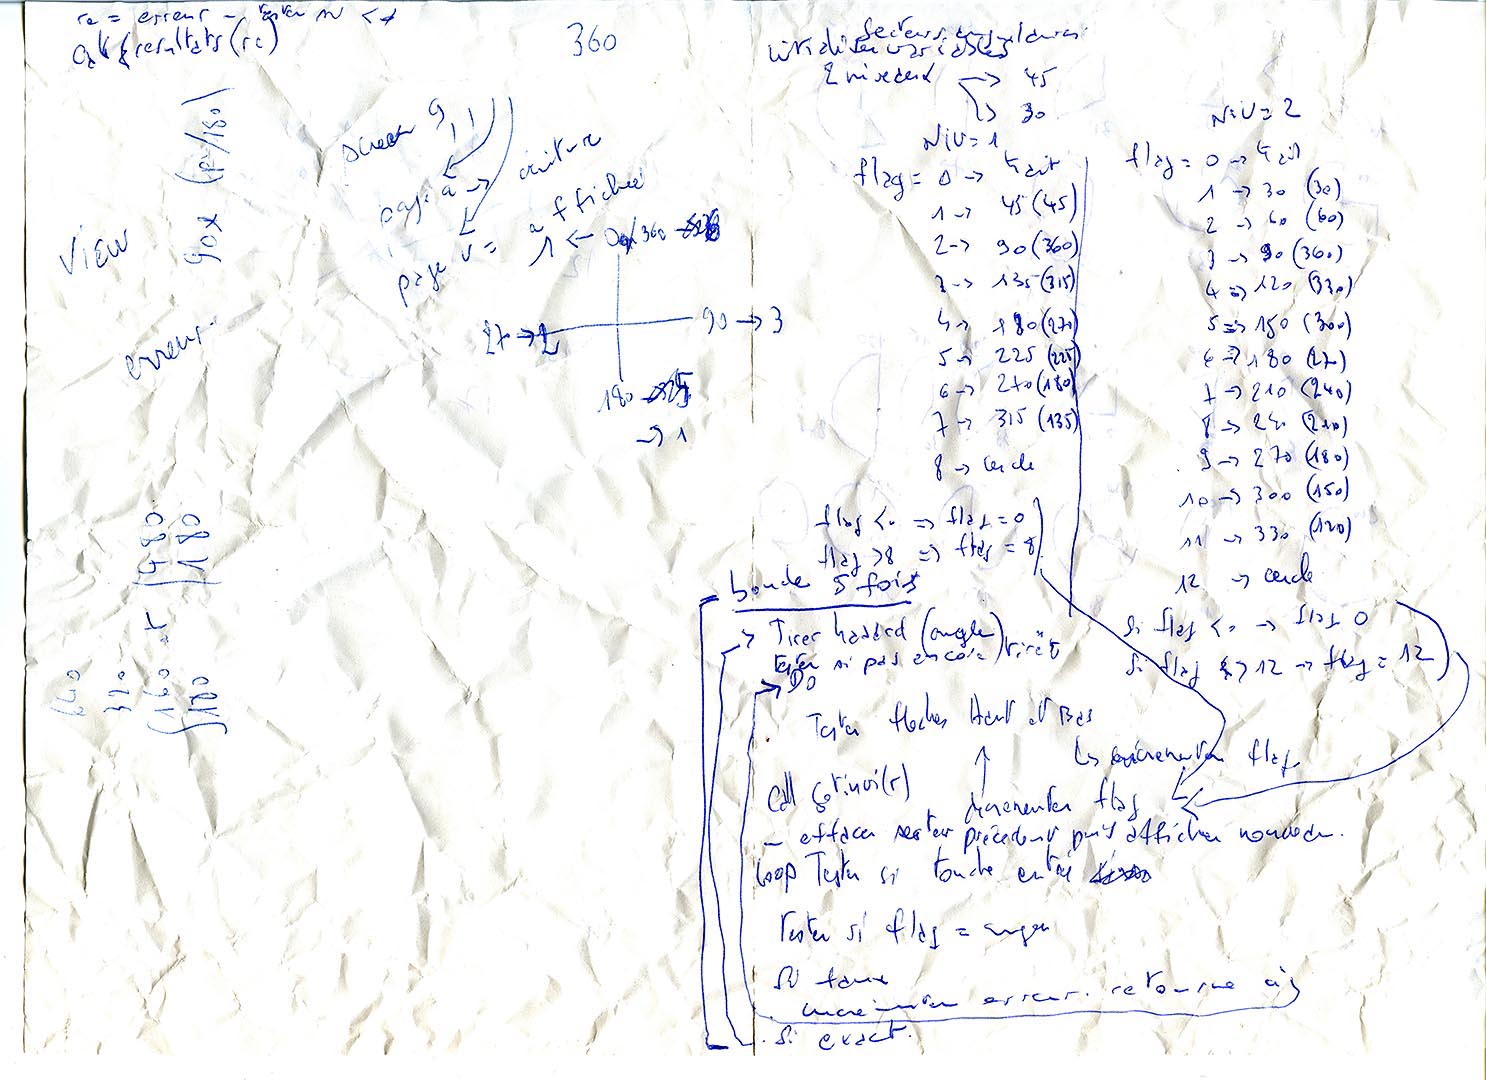 re = erreur - tester
resultats (re)
360
View
90x (pi/180)
erreur
screen 9,,
page a → écriture
page v = affichée
1 ← 0/360
27 → 2
90 → 3
180
→ 1
640
320
160
180
x
480
180
Secteurs angulaires
Initialiser variables
2 niveaux → 45
→ 30
Niv = 1
flag = 0 → trait
1 → 45 (45)
2 → 90 (360)
3 → 135 (315)
4 → 180 (270)
5 → 225 (225)
6 → 270 (180)
7 → 315 (135)
8 → cercle
flag < 0 => flag = 0
flag > 8 => flag = 8
Niv = 2
flag = 0 → trait
1 → 30 (30)
2 → 60 (60)
3 → 90 (360)
4 => 120 (330)
5 => 150 (300)
6 => 180 (270)
7 → 210 (240)
8 → 240 (210)
9 → 270 (180)
10 → 300 (150)
11 → 330 (120)
12 → cercle
Si flag < 0 → flag 0
Si flag > 12 → flag = 12
boucle 5 fois
→ Tirer hasard (angle)
tester si pas encore tiré
→ Do
Tester flèches Haut et Bas
↳ incrémenter flag
Call (r)
décrémenter flag
- effacer secteur précédent puis afficher nouveau.
Loop Tester si touche entrée
Tester si flag = angle
Si faux
incrémenter erreur. retourne
Si exact.